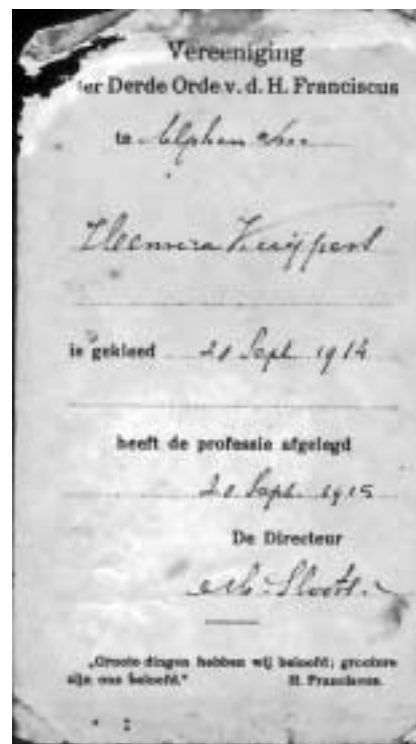 Vereeniging
der Derde Orde v. d. H. Franciscus
te Alphen
Kuijpers
is gekleed 20 Sept. 1914
heeft de professie afgelegd
20 Sept. 1915
De Directeur
Sloots
„Groote dingen hebben wij beloofd; grootere
zijn ons beloofd." H. Franciscus.